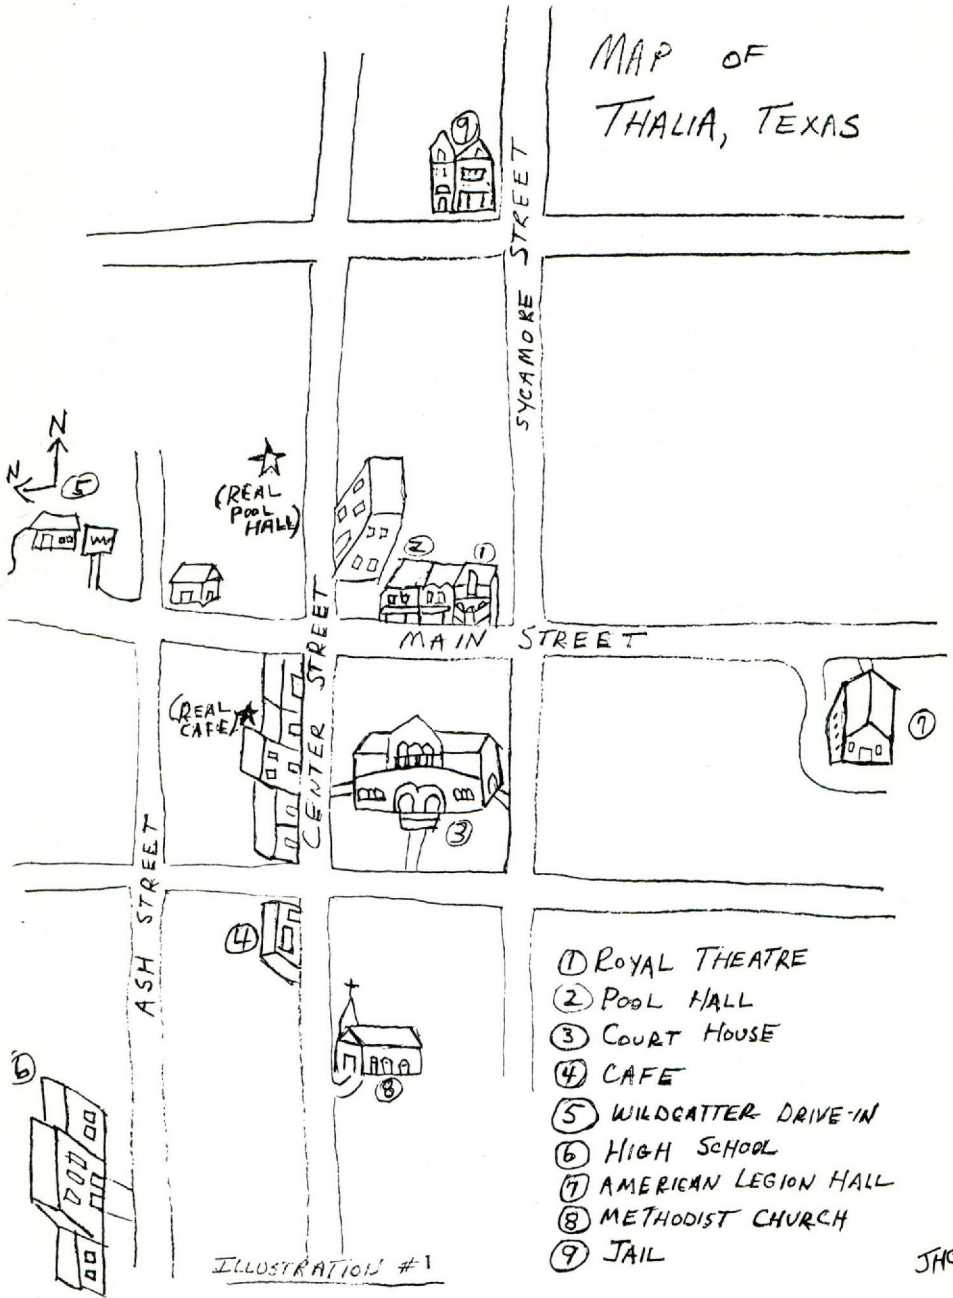 MAP OF
THALIA, TEXAS
9
SYCAMORE STREET
N
N
5
(REAL
POOL
HALL)
2
1
MAIN STREET
CENTER STREET
(REAL
CAFE)
7
3
ASH STREET
4
8
6
1 ROYAL THEATRE
2 POOL HALL
3 COURT HOUSE
4 CAFE
5 WILDCATTER DRIVE-IN
6 HIGH SCHOOL
7 AMERICAN LEGION HALL
8 METHODIST CHURCH
9 JAIL
ILLUSTRATION #1